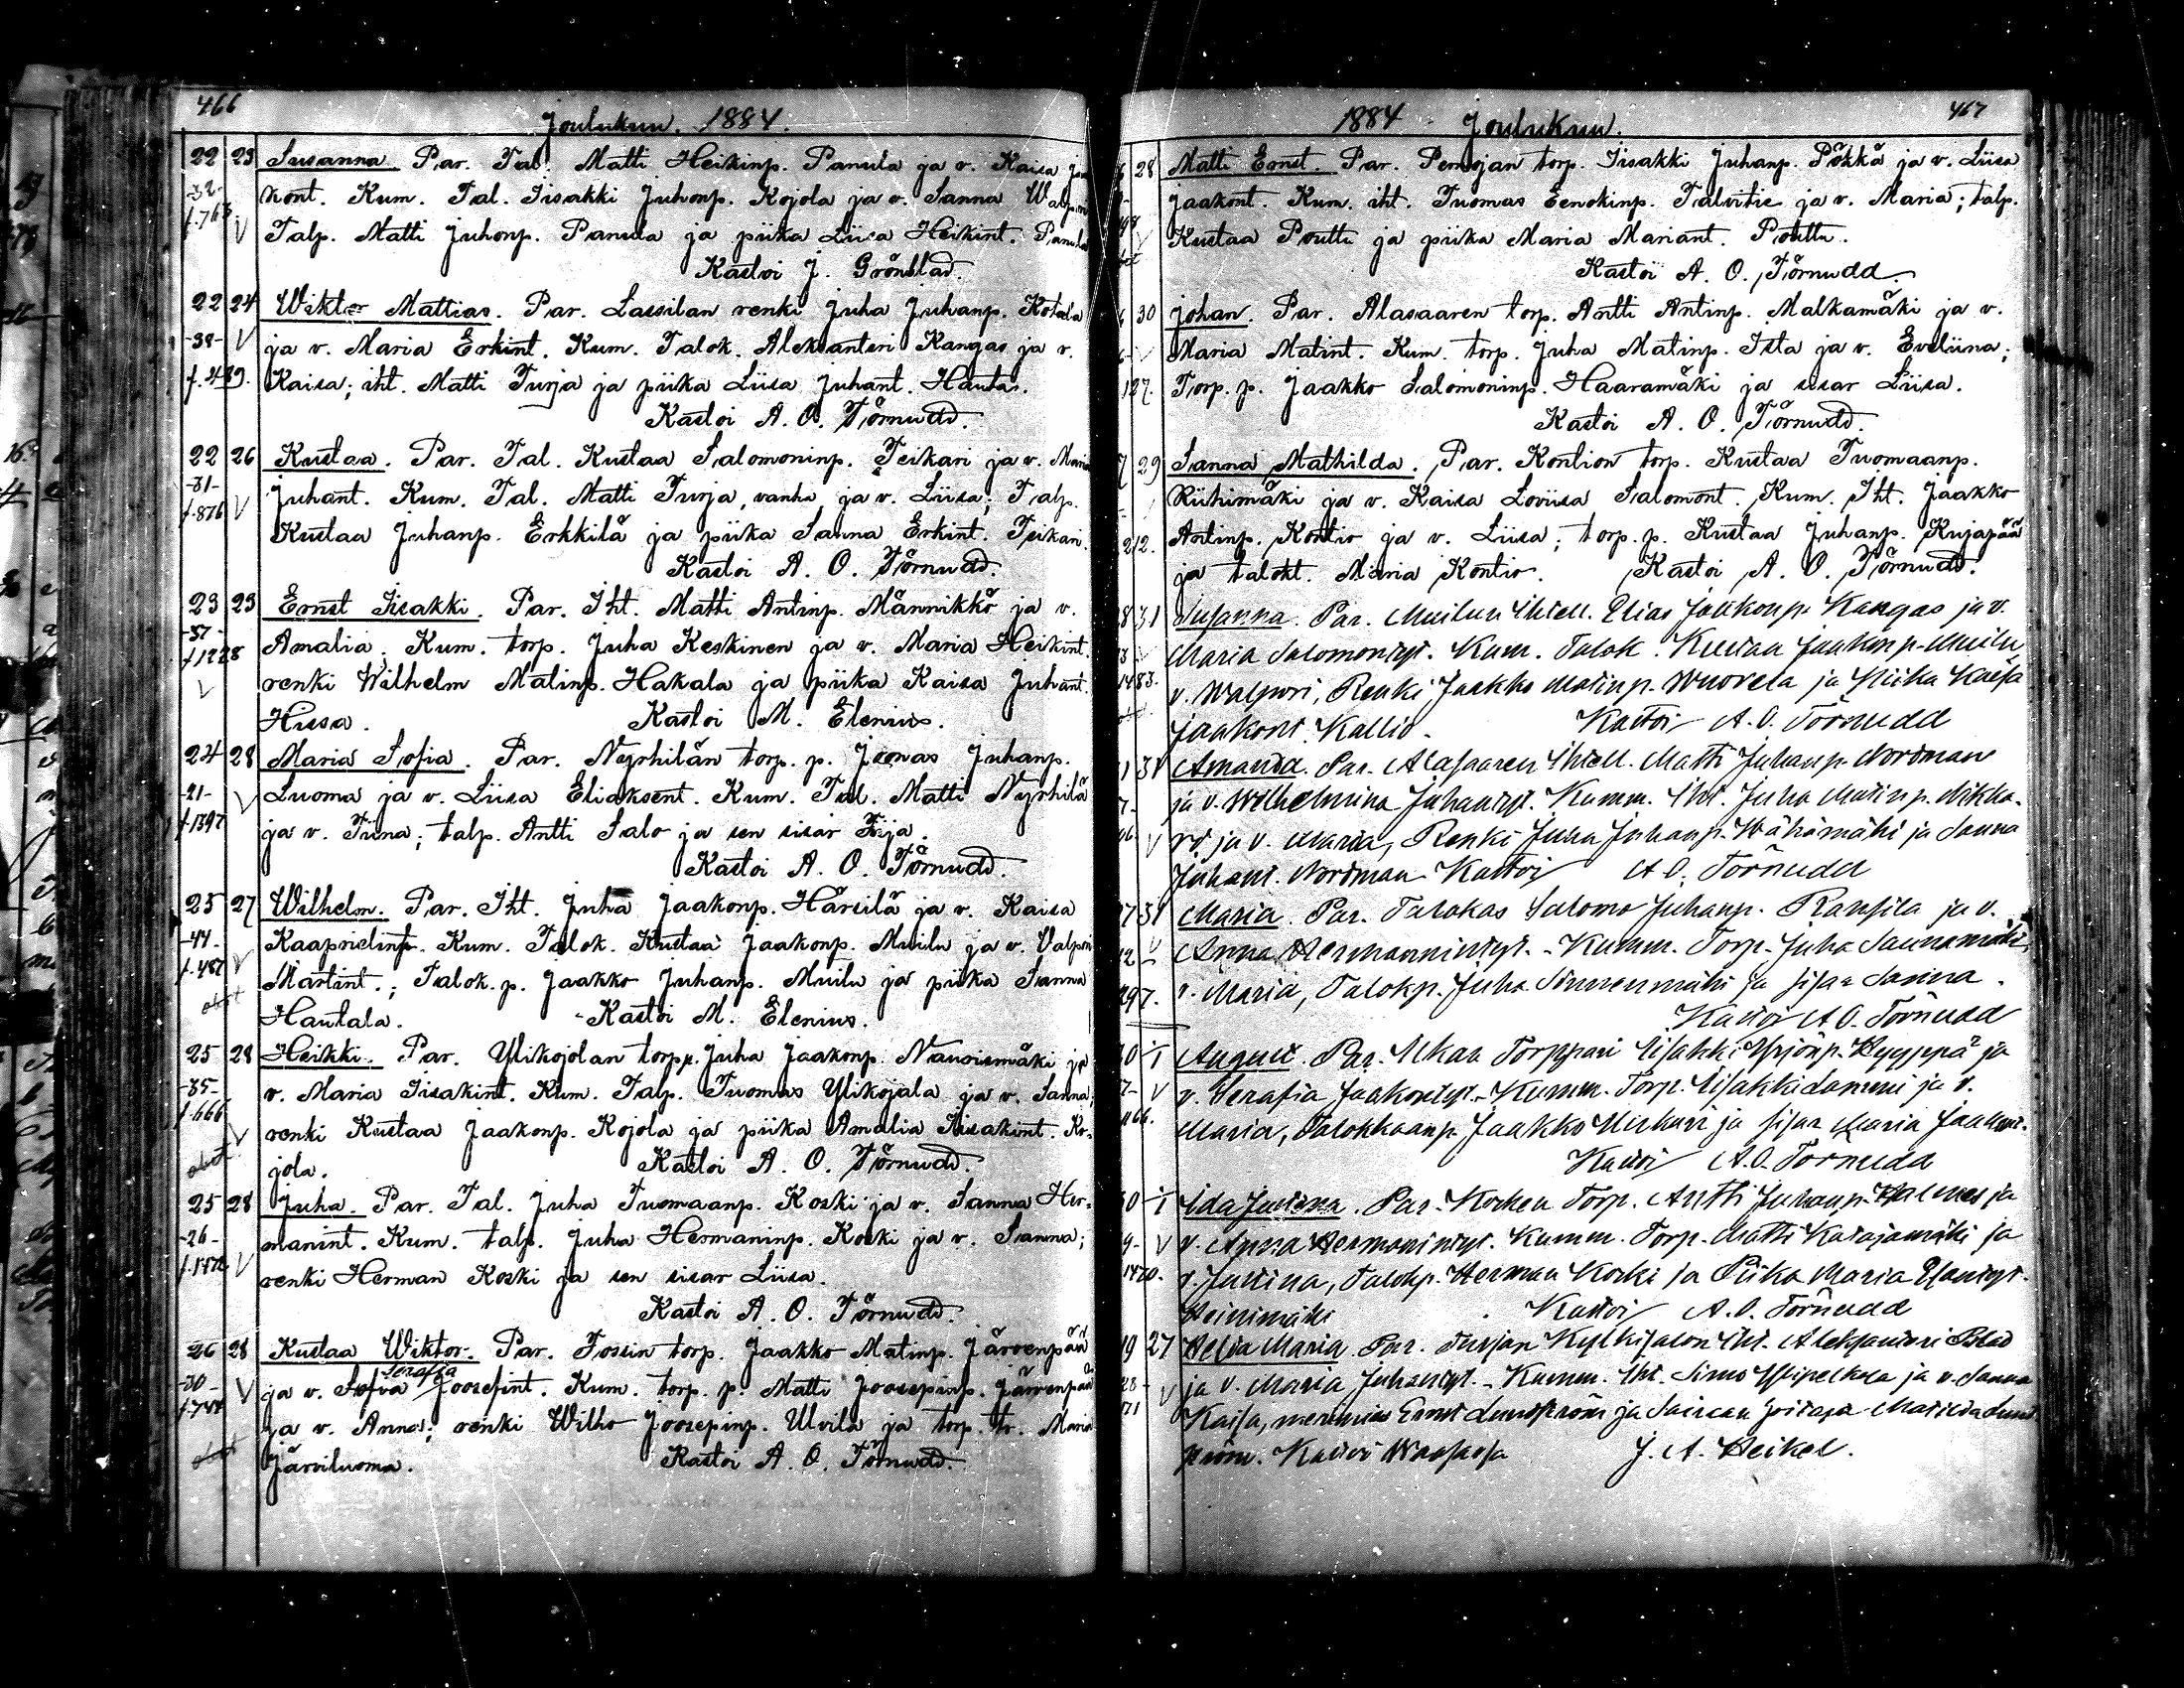 466
Joulukuu. 1884.
22 23 Susanna. Par. Tal. Matti Heikinp. Panula ja v. Kaisa
-32- kont. Kum. Tal. Iisakki Juhonp. Kojola ja v. Sanna
f.763 V Talp. Matti Juhonp. Panula ja piika Liisa Heikint. Panula
Kastoi J. Grönblad.
22 24 Wiktor Mattias. Par. Lassilan renki Juha Juhanp. Kotala
-38- V ja v. Maria Erkint. Kum. Talok. Aleksanteri Kangas ja v.
Kaisa; iht. Matti Turja ja piika Liisa Juhant. Hautas.
Kastoi A. O. Törnudd.
22 26 Kustaa. Par. Tal. Kustaa Salomoninp. Teikari ja v. Maria
-31- Juhant. Kum. Tal. Matti Turja, vanha ja v. Liisa; Talp.
f.876 V Kustaa Juhanp. Erkkilä ja piika Sanna Erkint. Teikari.
Kastoi A. O. Törnudd.
23 23 Ernst Iisakki. Par. Iht. Matti Antinp. Männikkö ja v.
-37- Amalia. Kum. torp. Juha Keskinen ja v. Maria Heikint.
f.1228 renki Wilhelm Matinp. Hakala ja piika Kaisa Juhant.
V Husa. Kastoi M. Elenius.
24 28 Maria Sofia. Par. Nyrhilän torp. p. Joonas Juhanp.
-21- V Luoma ja v. Liisa Eliaksent. Kum. Tal. Matti Nyrhilä
f.1397 ja v. Tiina; talp. Antti Salo ja sen sisar
Kastoi A. O. Törnudd.
25 27 Wilhelm. Par. Iht. Juha Jaakonp. Härsilä ja v. Kaisa
-44- Kaaprielint. Kum. Talok. Kustaa Jaakonp. Muilu ja v. Valpuri
f.487 V Martint.; Talok. p. Jaakko Juhanp. Muilu ja piika Sanna
Hautala. Kastoi M. Elenius.
25 28 Heikki. Par. Ylikojolan torpp. Juha Jaakonp. ja
-35- v. Maria Iisakint. Kum. Talp. Tuomas Ylikojola ja v. Sanna;
f.666 V renki Kustaa Jaakonp. Kojola ja piika Amalia Iisakint. Ko-
jola. Kastoi A. O. Törnudd.
25 28 Juha. Par. Tal. Juha Tuomaanp. Koski ja v. Sanna Her-
-26- manint. Kum. talp. Juha Hermaninp. Koski ja v. Sanna;
V renki Herman Koski ja sen sisar Liisa.
Kastoi A. O. Törnudd.
26 28 Kustaa Wiktor. Par. Tossin torp. Jaakko Matinp. Järvenpää
Serafia
-30- V ja v. Sofia Joosefint. Kum. torp. p. Matti Joosepinp. Järvenpää
ja v. Anna; renki Wilho Joosepinp. Ulvila ja torp. tr. Maria
Järviluoma. Kastoi A. O. Törnudd.
1884 Joulukuu. 467
28 Matti Ernst. Par. Pernojan torp. Iisakki Juhanp. Pökkä ja v. Liisa
Jaakont. Kum. iht. Tuomas Eenokinp. Talvitie ja v. Maria; talp.
Kustaa Poutti ja piika Maria Mariant. Pouttu.
Kastoi A. O. Törnudd.
30 Johan. Par. Alasaaren torp. Antti Antinp. Malkamäki ja v.
Maria Matint. Kum. torp. Juha Matinp. Ista ja v. Eveliina;
127. Torp. p. Jaakko Salomoninp. Haaramäki ja sisar Liisa.
Kastoi A. O. Törnudd.
29 Sanna Mathilda. Par. Kontion torp. Kustaa Tuomaanp.
Riihimäki ja v. Kaisa Loviisa Salomont. Kum. Iht. Jaakko
212. Antinp. Kontio ja v. Liisa; torp. p. Kustaa Juhanp. Kujapää
ja talokt. Maria Kontio. Kastoi A. O. Törnudd.
31 Susanna. Par. Muilun Ihtell. Elias Jaakonp. Kangas ja v.
Maria Salomonint. Kum. Talok. Kustaa Jaakonp. Muilu
v. Walpuri, Renki Jaakko Matinp. Wuorela ja Piika Kaisa
Jaakont. Kallio. Kastoi A. O. Törnudd
31 Amanda. Par. Alasaaren Ihtell. Matti Juhanp. Nordman
ja v. Wilhelmina Juhantyt. Kumm. Iht. Juha Matinp. Nikka-
V ro ja v. Maria, Renki Juha Juhanp. Wähämäki ja Sanna
Juhant. Nordman Kastoi A. O. Törnudd
31 Maria. Par. Talokas Salomo Juhanp. Ransila ja v.
Anna Hermannintyt. - Kumm. Torp. Juha Saunamäki,
297. v. Maria, Talokp. Juha ja sisar Sanna.
Kastoi A. O. Törnudd
August. Par. Torppari Iisakki Yrjönp. Hyyppä ja
V v. Serafia Jaakontyt. - Kumm. Torp. Iisakki Lammi ja v.
Maria, Talokkaanp. Jaakko ja sisar Maria Jaakont.
Kastoi A. O. Törnudd
Ida Justina. Par. Kosken Torp. Antti Juhanp. Halmes ja
V v. Anna Hermanintyt. Kumm. Torp. Matti Katajamäki ja
1470. v. Justina, Talokp. Herman Koski ja Piika Maria
Heinimäki Kastoi A. O. Törnudd
27 Helia Maria. Par. Turjan Iht. Aleksanteri Blad
V ja v. Maria Juhantyt. - Kumm. Iht. Simo ja v. Sanna
Kaisa, merimies Ernst Lundström ja Matilda Lund
ström. Kastoi Waasassa J. A. Heikel.